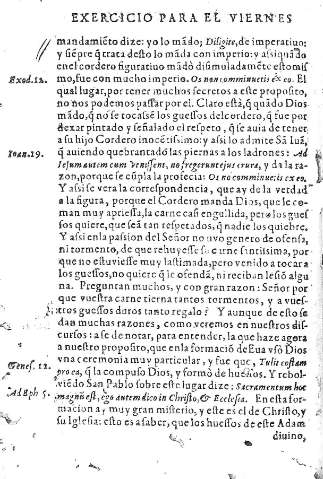 EXERCICIO PARA EL VIERNES
mandamiẽto dize: yo lo mãdo; Diligite, de imperatiuo;
y siẽpre q̃ trata desto lo manda con imperio: assi quãdo
en el cordero figuratiuo mãdò dissimuladamẽte esto mis
Exod.12.
mo, fue con mucho imperio. Os non comminuetis ex eo. El
qual lugar, por tener muchos secretos a este proposito,
no nos podemos passar por el. Claro està, q̃ quãdo Dios
mãdò, q̃ no se tocassẽ los guessos del cordero, q̃ fue por
dexar pintado y señalado el respeto, q̃ se auia de tener
a su hijo Cordero inocẽtissimo: y assi lo admite Sã Iuã,
q̃ auiendo quebrantado las piernas a los ladrones: Ad
Ioan.19.
Iesum autem cum venissent, no fregerunt eius crura, y da la ra-
zon, porque se cũpla la profecia: Os no comminuetis ex eo.
Y assi se vera la correspondencia, que ay de la verdad
a la figura, porque el Cordero manda Dios, que le co-
man muy apriessa, la carne casi engullida, pero los gues
sos quiere, que seã tan respetados, q̃ nadie los quiebre.
Y assi en la passion del Señor no uvo genero de ofensa,
ni tormento, de que rehuyesse su carne santissima, por
que no estuviesse muy lastimada, pero venido a tocar a
los guessos, no quiere q̃ le ofendã, ni reciban lesiõ algu
na. Preguntan muchos, y con gran razon: Señor por
que vuestra carne tierna tantos tormentos, y a vues-
tros guessos duros tanto regalo? Y aunque de esto se
dan muchas razones, como veremos en nuestros dis-
cursos: a se de notar, para entender, la que haze agora
a nuestro proposito, que en la formaciõ de Eua usò Dios
Genes. 12.
vna ceremonia muy particular, y fue que, Tulit costam
pro ea, q̃ la compuso Dios, y formò de huessos. Y rebol-
viẽdo San Pablo sobre este lugar dize: Sacramentum hoc
Ad Eph 5.
magnũ est, ego autem dico in Christo, & Ecclesia. En esta for-
macion a, muy gran misterio, y este es el de Christo, y
su Iglesia: esto es a saber, que los huessos de este Adam
diuino,